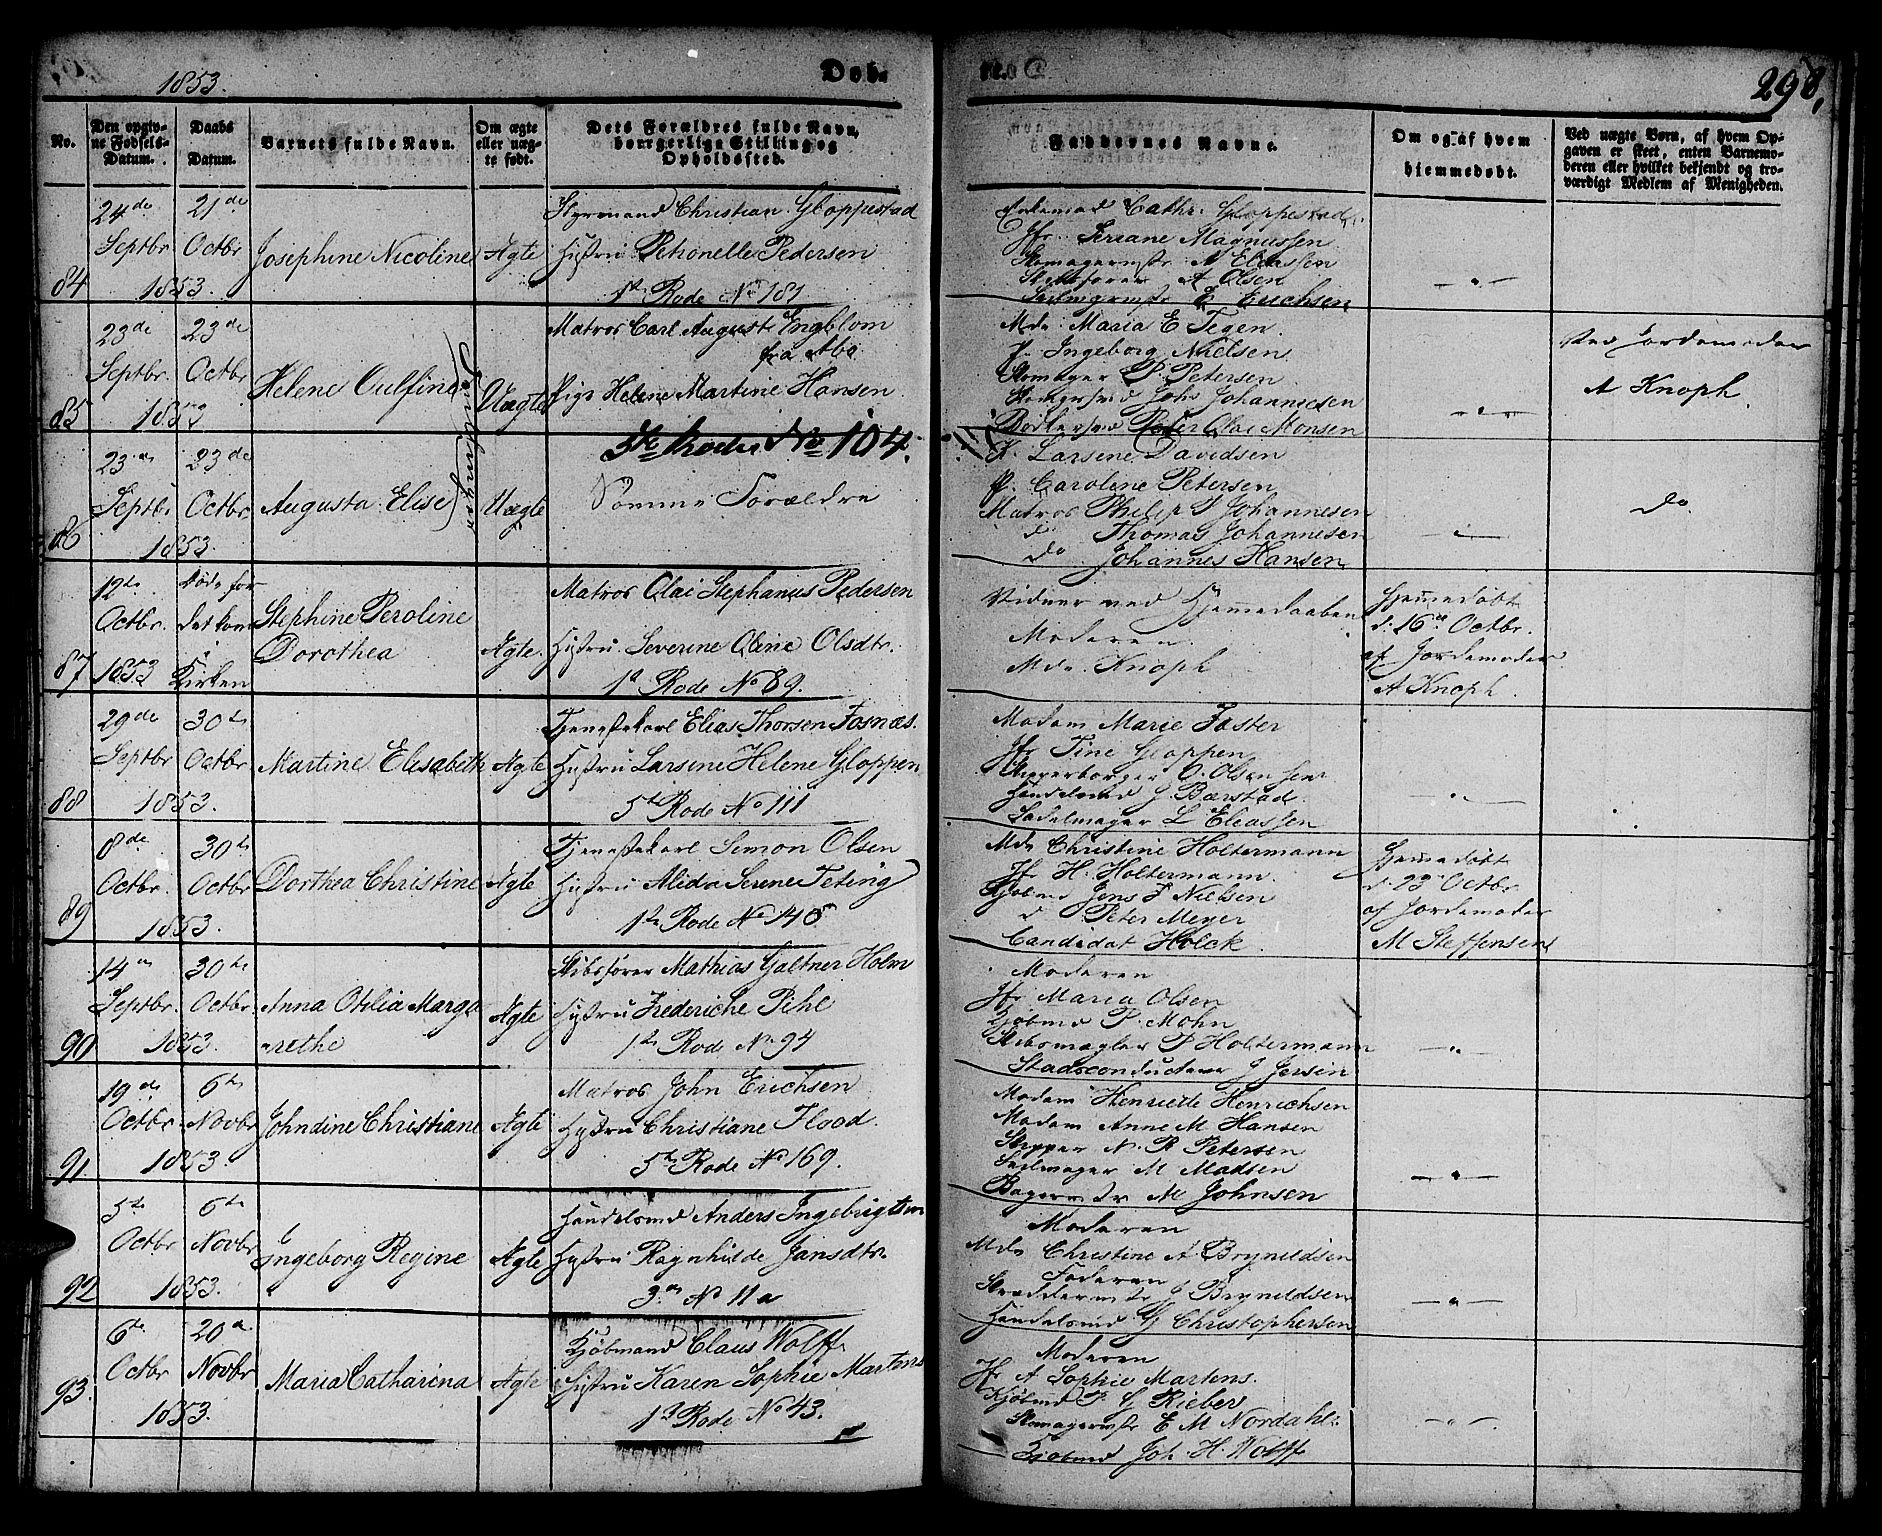 1853.
Døb.
298,
No.
Den opgivne Fødsels-Datum.
Daabs Datum.
Barnets fulde Navn.
Om ægte eller uægte født.
Dets Forældres fulde Navn, borgerlige Stilling og Opholdssted.
Faddernes Navne.
Om og af hvem hjemmedøbt.
Ved uægte Børn, af hvem Opgaven er skeet, enten Barnemoderen eller hvilket bekjendt og troværdigt Medlem af Menigheden.
84
24de Septbr
21de Octbr
1853.
Josephine Nicoline
Ægte
Styrmand Christian Gloppestad
Hustru Petronelle Pedersen
1ste Rode No 181
Cathr. Gloppestad
Jfr. Seriane Magnussen
Skomagermstr N Eliassen
A Olsen
Seilmgrmstr E Erichsen
85
23de Septbr.
23de Octbr
1853
Helene Gulfine
Tvillinger
Uægte
Matros Carl August Engblom
fra Abo
Pige Helene Martine Hansen
5te Rode No 104.
Mde Maria E Tegen.
P. Ingeborg Nielsen
Skomager P. Petersen
Johs Johannesen
Peter Olai Monsen
Ved Jordemoder
A Knoph.
86
23de Septbr
23de Octbr
1853.
Augusta Elise
Uægte
Samme Forældre
K. Larsine Davidsen
P. Caroline Petersen
Matros Philip J Johannesen
do Thomas Johannesen
do Johannes Hansen
do.
87
12te Octbr.
1853
Døde før det kom i Kirken
Stephine Peroline
Dorothea
Ægte.
Matros Olai Stephanus Pedersen
Hustru Severine Oline Olsdtr.
1ste Rode No 89.
Vidner ved Hjemmedaaben
Moderen
Mde Knoph
Hjemmedøbt
d. 16de Octbr.
af Jordemoder
A Knoph.
88
29de Septbr
30te Octbr
1853.
Martine Elisabeth
Ægte
Tjenestekarl Elias Thorsen Fosnæs.
Hustru Larsine Helene Gloppen
5te Rode No 111
Madam Marie Faster
Jfr Tine Gloppen
Skipperborger O. Olsen sen.
Handelsmd J Barstad.
Sadelmager L Eliassen
89
8de Octbr.
30te Octbr
1853.
Dorthea Christine
Ægte
Tjenestekarl Simon Olsen
Hustru Alida Serene Teting
1ste Rode No 148
Mde Christine Holtermann
Jfr H. Holtermann.
Kjøbmd Jens F Nielsen
d Peter Meyer
Candidat Holck.
Hjemmedøbt
d. 23de Octbr
af Jordemoder
M Steffensen
90
14de Septbr.
30te Octbr.
1853.
Anna Otilia Marga
rethe
Ægte
Skibsfører Mathias Galtner Holm
Hustru Frederiche Pihl
1ste Rode No 94
Moderen
Jfr Maria Olsen
Kjøbmd P. Mohn
Skibsmægler P Holtermann
Stadsconducteur J Jersin
91.
19de Octbr
6te Novbr
1853.
Johndine Christiane
Ægte
Matros John Erichsen
Hustru Christiane Flood.
5te Rode No 169.
Madam Henriette Henrichsen
Madam Anne M Hansen
Skipper N. R Petersen
Seilmager M Madsen
Bagermstr M Johnsen
92
5te Octbr
6te Novbr
1853.
Ingeborg Regine
Ægte
Handelsmd Anders Ingebrigtsen
Hustru Ragnhilde Jansdtr
3die No 11a
Moderen
Mde Christine A Bryneldsen
Faderen
Skræddermstr J Bryneldsen
Handelsmd G Christophersen
93.
6te Octbr
20de Novbr
1853.
Maria Catharina
Ægte
Kjøbmand Claus Wolff
Hustru Karen Sophie Martens
13 Rode No 43.
Moderen
Jfr A Sophie Martens.
Kjøbmd P. G Rieber
Skomagermstr E M Nordahl.
Kjøbmd Joh. H. Wolff